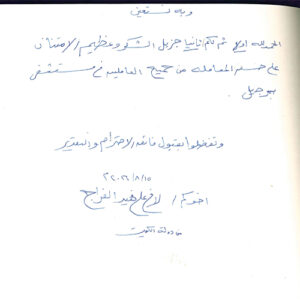 وبه نستعين
الحمد لله أولاً ثم لكم ثانياً جزيل الشكر وعظيم الامتنان
على حسن المعاملة من جميع العاملين في مستشفى
بوجيل .
وتفضلوا بقبول فائق الاحترام والتقدير
أخوكم /
دولة الكويت